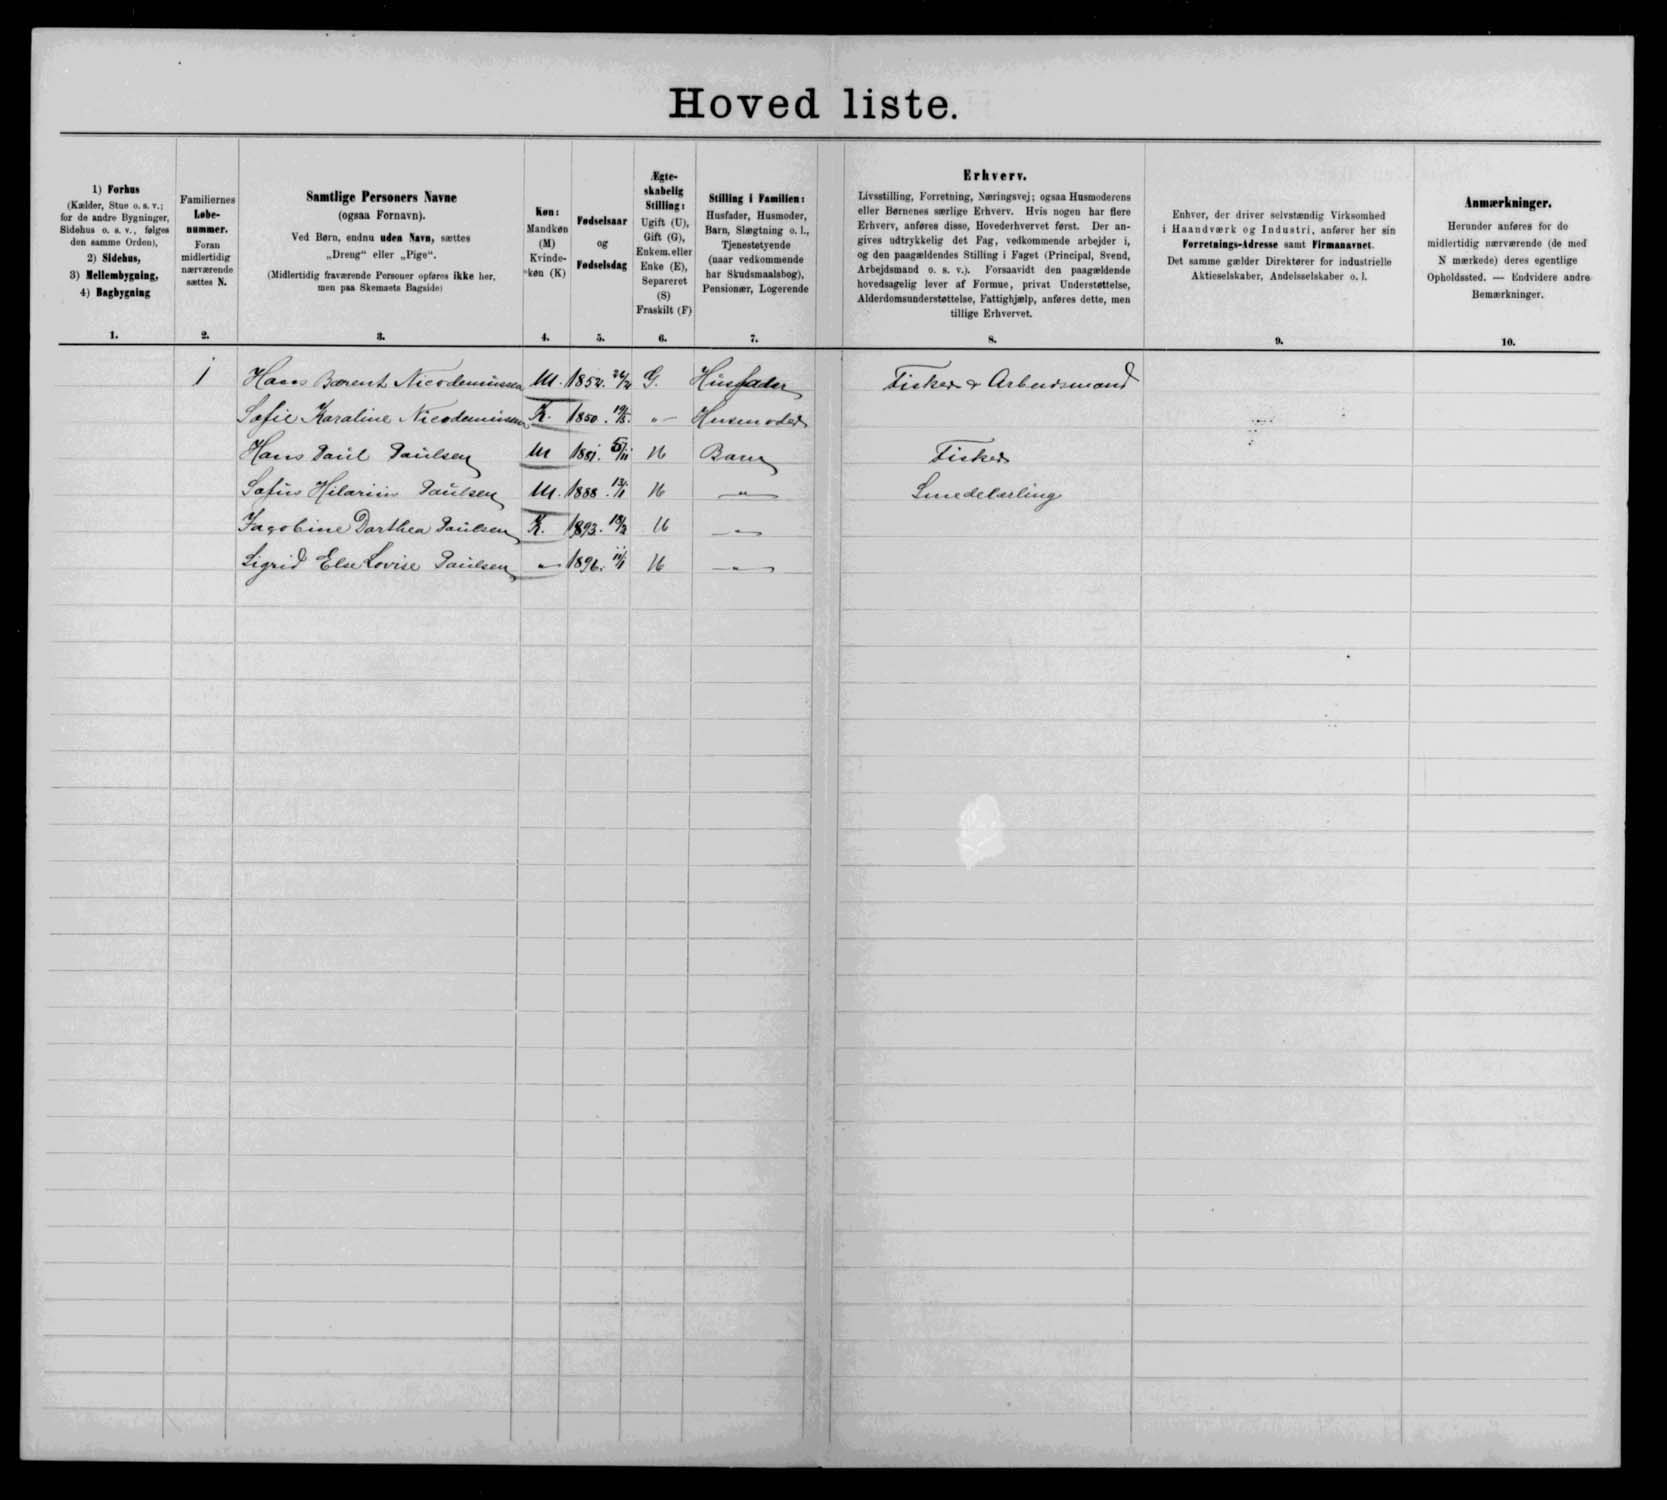 Hoved liste.
1) Forhus
(Kælder, Stue o. s. v.;
for de andre Bygninger,
Sidehus o. s. v., følges
den samme Orden),
2) Sidehus,
3) Mellembygning,
4) Bagbygning
1.
Familiernes
Løbe-
nummer.
Foran
midlertidig
nærværende
sættes N.
2.
Samtlige Personers Navne
(ogsaa Fornavn).
Ved Børn, endnu uden Navn, sættes
„Dreng“ eller „Pige“.
(Midlertidig fraværende Personer opføres ikke her,
men paa Skemaets Bagside)
3.
Køn:
Mandkøn
(M)
Kvinde-
køn (K)
4.
Fødselsaar
og
Fødselsdag
5.
Ægte-
skabelig
Stilling:
Ugift (U),
Gift (G),
Enkem. eller
Enke (E),
Separeret
(S)
Fraskilt (F)
6.
Stilling i Familien:
Husfader, Husmoder,
Barn, Slægtning o. l.,
Tjenestetyende
(naar vedkommende
har Skudsmaalsbog),
Pensionær, Logerende
7.
Erhverv.
Livsstilling, Forretning, Næringsvej; ogsaa Husmoderens
eller Børnenes særlige Erhverv. Hvis nogen har flere
Erhverv, anføres disse, Hovederhvervet først. Der an-
gives udtrykkelig det Fag, vedkommende arbejder i,
og den paagældendes Stilling i Faget (Principal, Svend,
Arbejdsmand o. s. v.). Forsaavidt den paagældende
hovedsagelig lever af Formue, privat Understøttelse,
Alderdomsunderstøttelse, Fattighjælp, anføres dette, men
tillige Erhvervet.
8.
Enhver, der driver selvstændig Virksomhed
i Haandværk og Industri, anfører her sin
Forretnings-Adresse samt Firmanavnet.
Det samme gælder Direktører for industrielle
Aktieselskaber, Andelsselskaber o. l.
9.
Anmærkninger.
Herunder anføres for de
midlertidig nærværende (de med
N mærkede) deres egentlige
Opholdssted. — Endvidere andre
Bemærkninger.
10.
1 Hans Bærent Nicodemussen M. 1852. 26/2 G. Husfader Fisker & Arbeidsmand
Sofie Karaline Nicodemussen K. 1850. 19/5. „ — Husmoder
Hans Paul Paulsen M 1881. 5/11 U Barn Fisker
Sofus Hilarius Paulsen M. 1888. 13/1 U — „ — Smedelærling
Jagobine Darthea Paulsen K. 1893. 18/2 U — „ —
Sigrid Else Lovise Paulsen „ 1896. 11/1 U — „ —